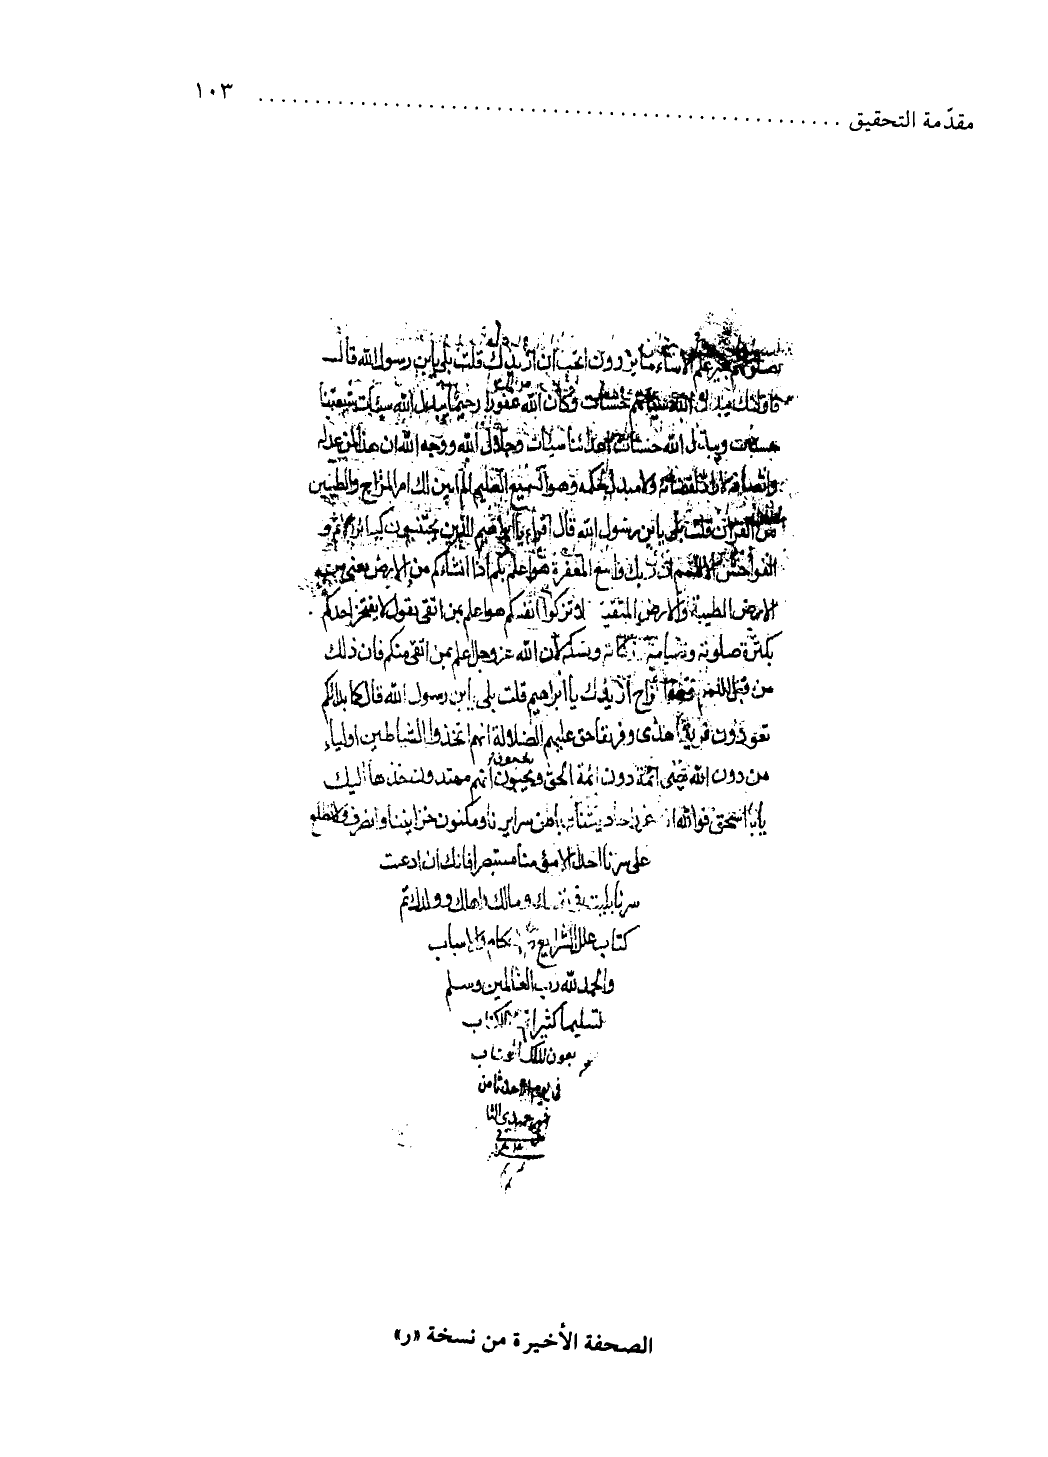 مقدّمة التحقيق ........................................ ١٠٣
بغير علم الاساء ما يزرون اتحب ان ازيدك قلت بلى يابن رسول الله قالــ
فاولئك يبدل الله سيئاتهم حسنات وكان الله غفورا رحيما يبدل الله سيئات شيعتنا
حسنات ويبدل الله حسنات اعدائنا سيئات وجلال الله ووجه الله ان هذا لمن عدله
وانصافه لا راد لقضائه ولا مبدل لحكمه وهو السميع العليم الم ابين لك امر المزاج والطينتين
من القرآن قلت بلى يابن رسول الله قال اقرأ يا ابراهيم الذين يجتنبون كبائر الاثم و
الفواحش الا اللمم ان ربك واسع المغفرة هو اعلم بكم اذا انشأكم من الارض يعني من
الارض الطيبة والارض المنتنة لا تزكوا انفسكم هو اعلم بمن اتقى يقول لا يفتخر احدكم
بكثرة صلوته وصيامه وزكاته ونسكه لان الله عز وجل اعلم بمن اتقى منكم فان ذلك
من قبل اللمم ازيدك يا ابراهيم قلت بلى يابن رسول الله قال كما بدائكم
تعودون فريقا هدى وفريقا حق عليهم الضلالة انهم اتخذوا الشياطين اولياء
من دون الله يعني ائمة دون ائمة الحق ويحسبون انهم مهتدون خذها اليك
يا با اسحق فوالله انه غرر احاديثنا وباطن سرايرنا ومكنون خزايننا وانصرف ولا تطلع
على سرنا احدا الا مؤمنا مستبصرا فانك ان اذعت
سرنا بليت في نفسك ومالك واهلك وولدك تم
كتاب علل الشرايع والاحكام والاسباب
والحمد لله رب العالمين وسلم
تسليما كثيرا تم الكتاب
بعون الملك الوهاب
في يوم الاحد ثامن
الصحفة الأخيرة من نسخة «ر»